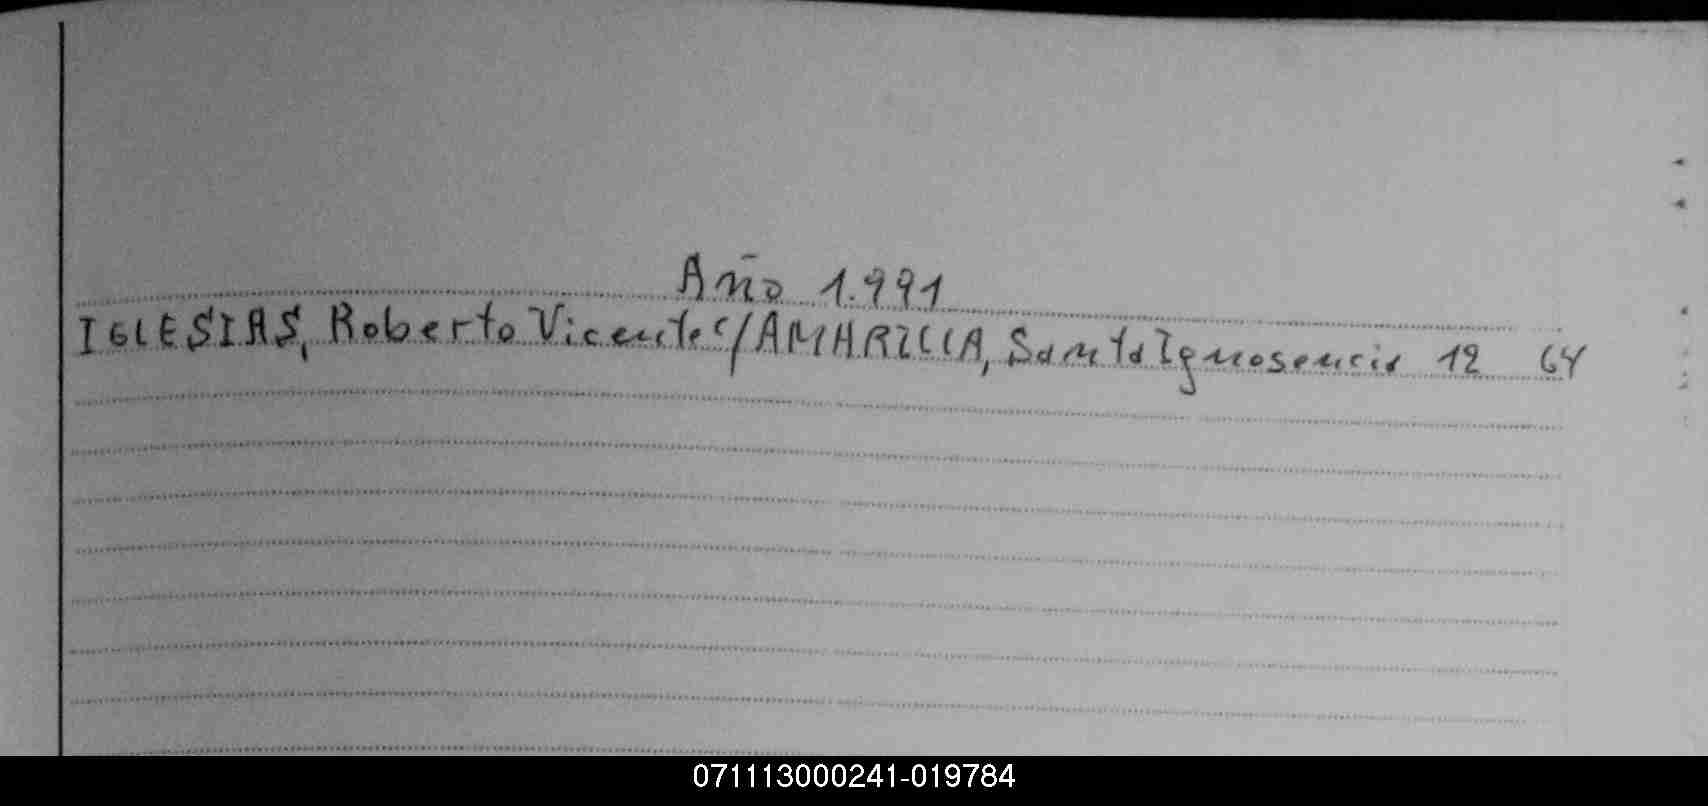 Año 1.991
IGLESIAS, Roberto Vicente c/AMARILLA, Santa Ignosencia 12 64
071113000241-019784